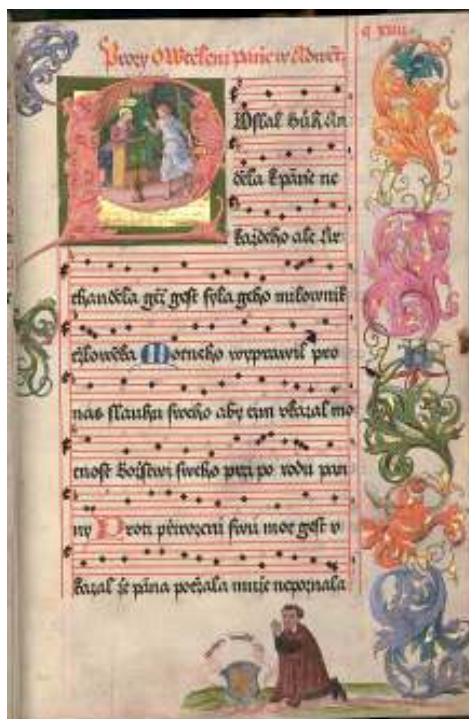 Prozy O Wtěleni panie w Adwēt:
POslal Bůh An
děla k pāně ne
každeho ale Ar
chanděla gēž gest syla geho milownik
cžlowěka Mocneho wyprawil pro
nas slauhu sweho aby nam vkazal mo
cnost Božstwi sweho przi po rodu pan
ny Proti přirozeni swu moc gest v
kazal že pāna počzala muže nepoznala